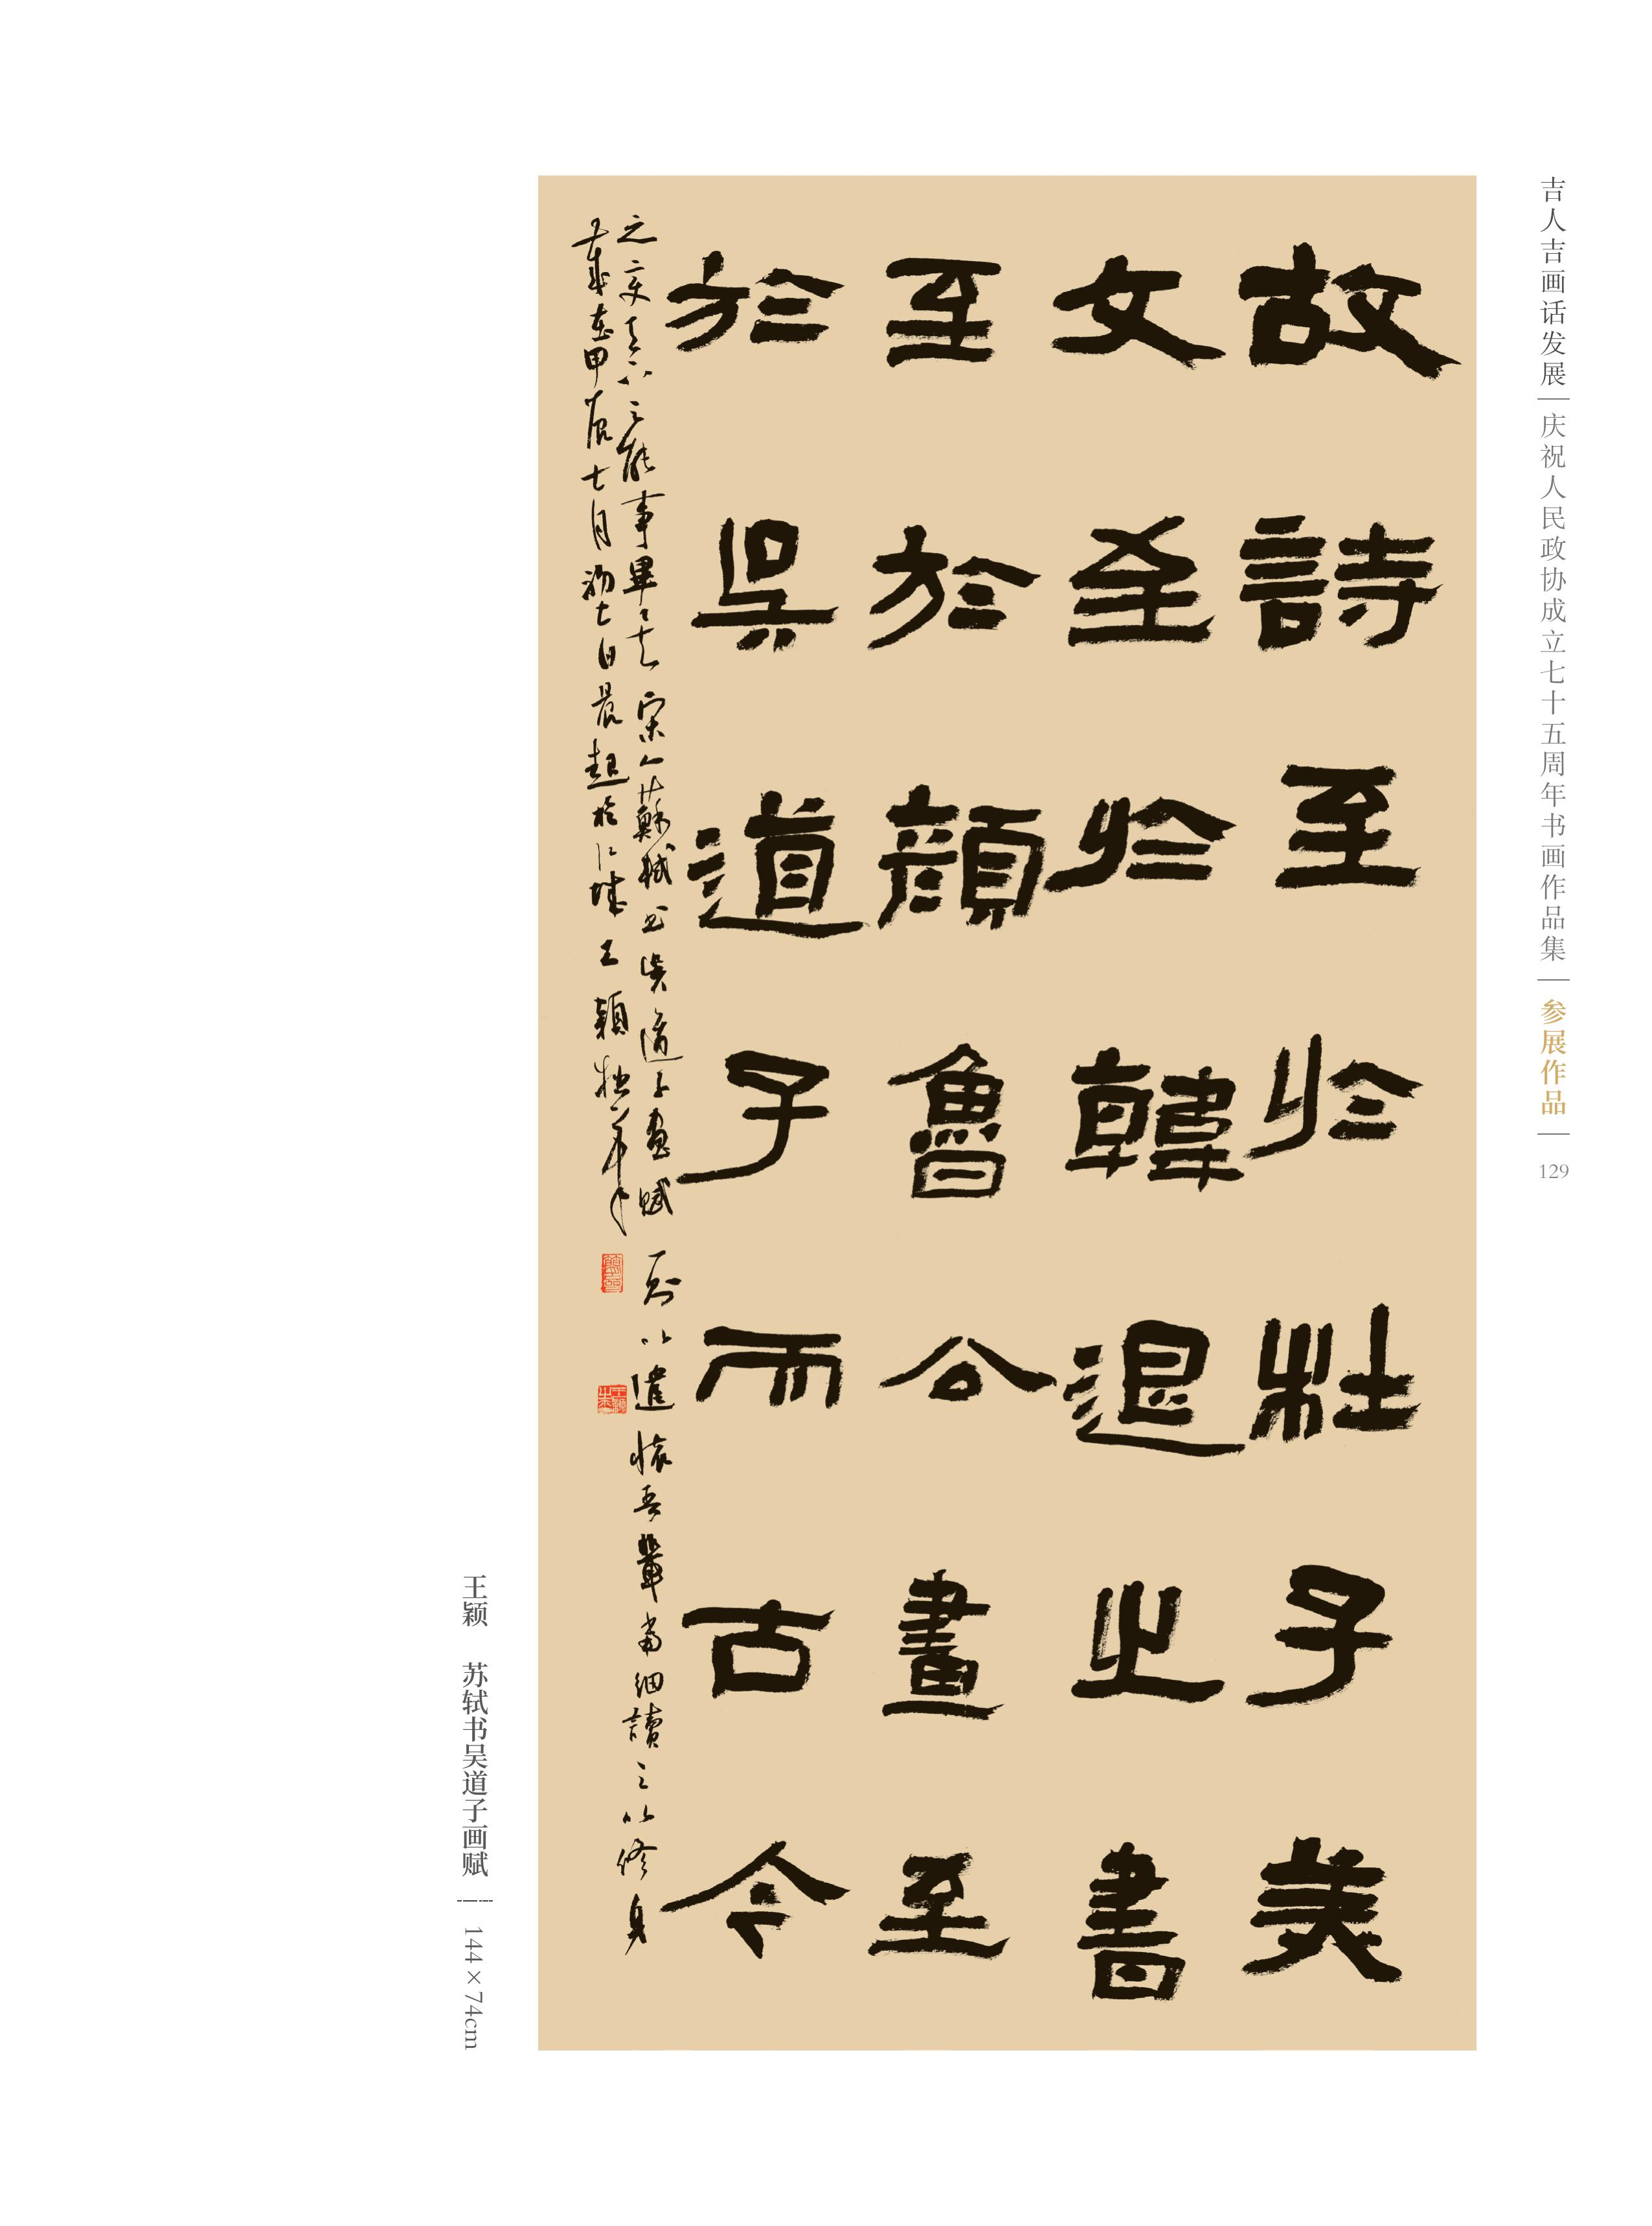 吉人吉画话发展 庆祝人民政协成立七十五周年书画作品集 参展作品 129
故詩至於杜子美
文至於韓退之書
至於顏魯公畫至
於吳道子而古今
之変天下之能事畢矣 宋人蘇軾書吳道子畫賦 一則以遣懷吾輩當細讀之以修身
歲在甲辰七月初七日晨起於江城 王穎拙筆
王颖 苏轼书吴道子画赋 144×74cm